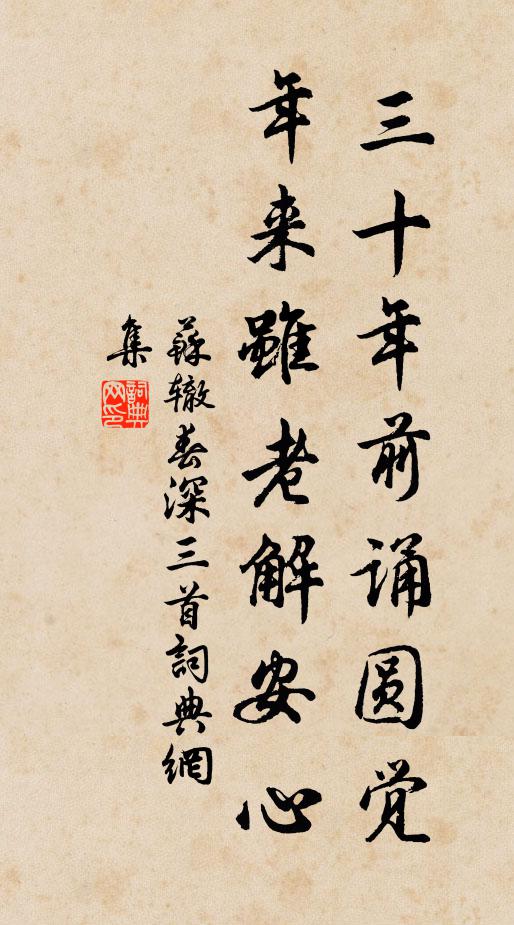 三十年前诵圆觉
年来雖老解安心
蘇辙春深三首詞典網
集
詞典
网印